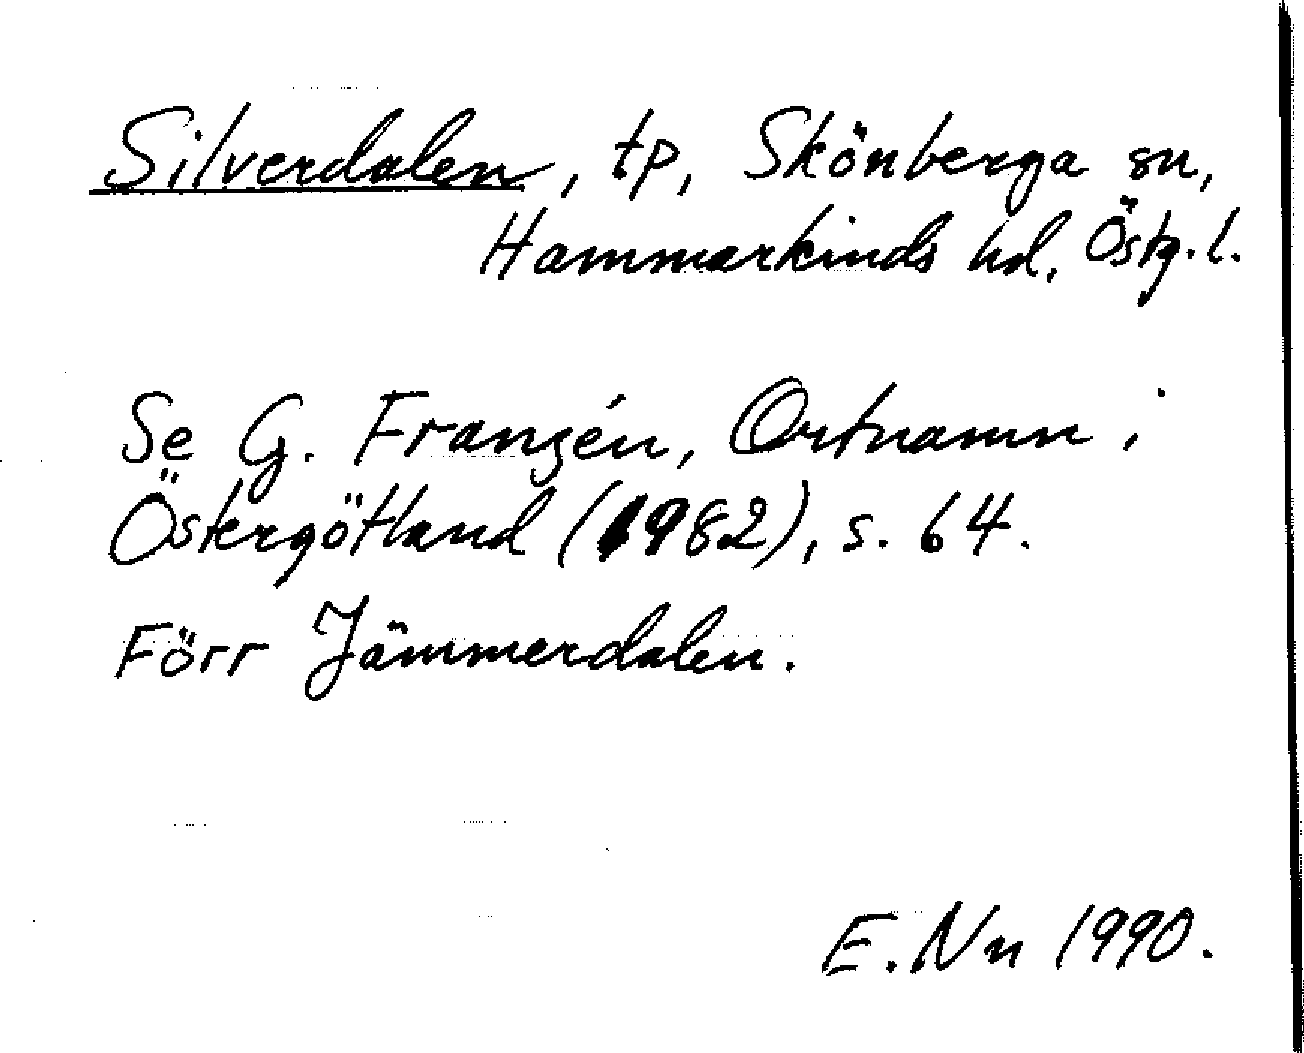 Silverdalen, tp, Skönberga sn,
Hammarkinds hd, Östg. l.
Se G. Franzén, Ortnamn i
Östergötland (1982), s. 64.
Förr Jämmerdalen.
E. Nn 1990.